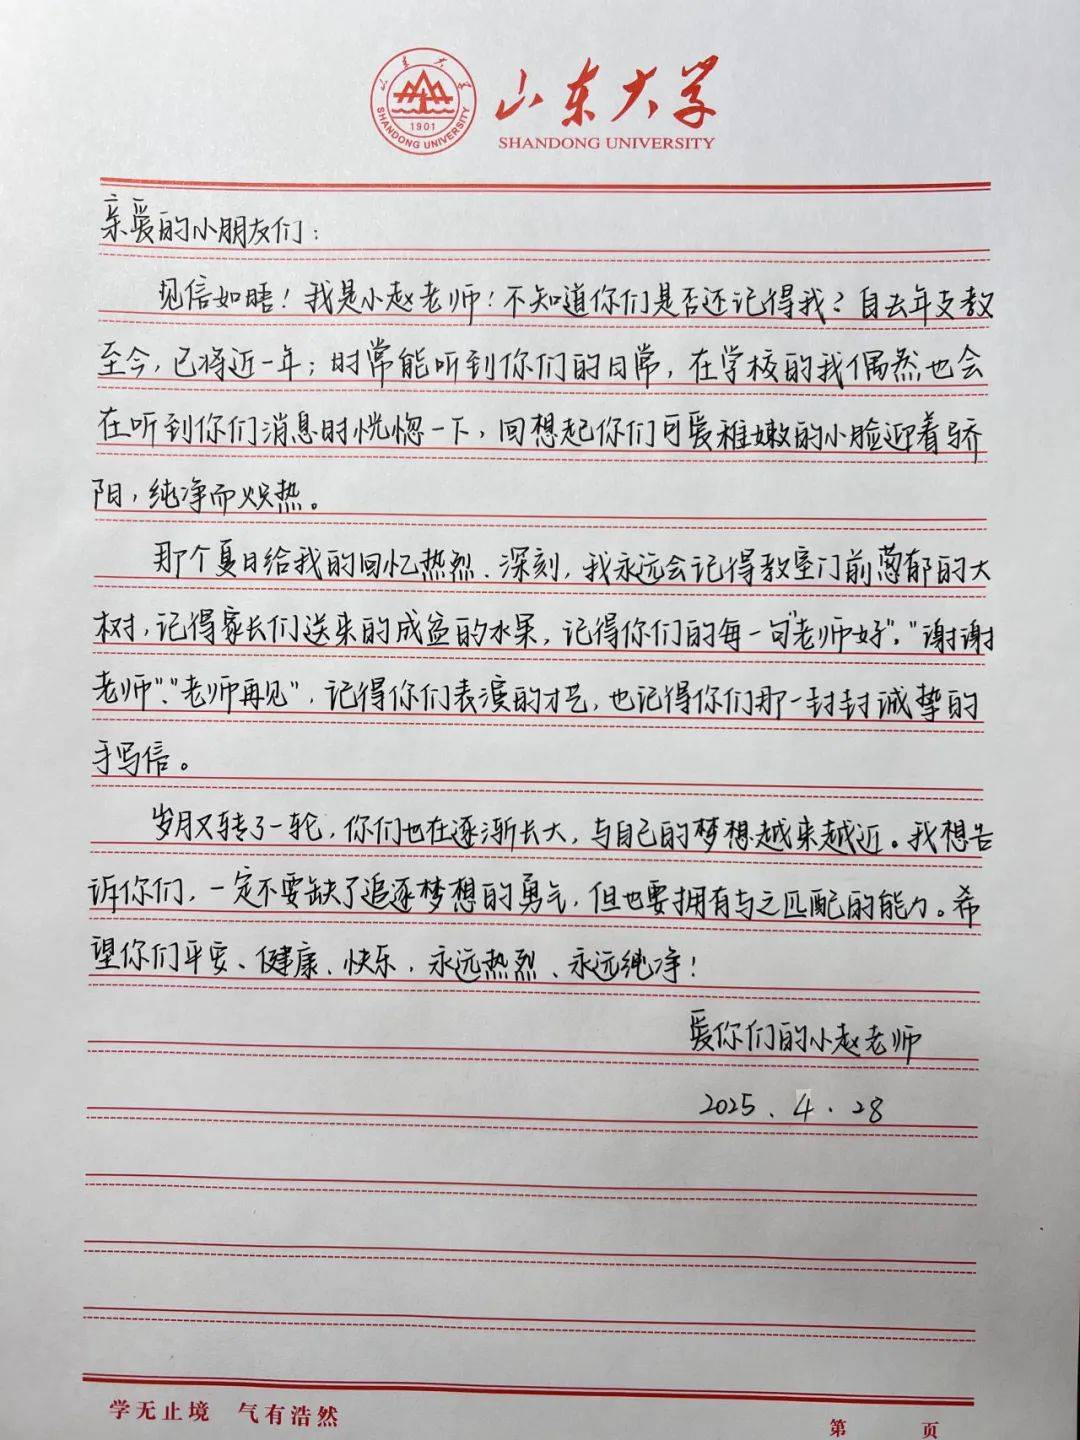 山东大学
1901
SHANDONG UNIVERSITY
山东大学
SHANDONG UNIVERSITY
亲爱的小朋友们：
见信如晤！我是小赵老师！不知道你们是否还记得我？自去年支教
至今，已将近一年；时常能听到你们的日常，在学校的我偶然也会
在听到你们消息时恍惚一下，回想起你们可爱稚嫩的小脸迎着骄
阳，纯净而炽热。
那个夏日给我的回忆热烈、深刻，我永远会记得教室门前葱郁的大
树，记得家长们送来的成盆的水果，记得你们的每一句“老师好”、“谢谢
老师”、“老师再见”，记得你们表演的才艺，也记得你们那一封封诚挚的
手写信。
岁月又转了一轮，你们也在逐渐长大，与自己的梦想越来越近。我想告
诉你们，一定不要缺了追逐梦想的勇气，但也要拥有与之匹配的能力。希
望你们平安、健康、快乐，永远热烈、永远纯净！
爱你们的小赵老师
2025.4.28
学无止境 气有浩然
第 页